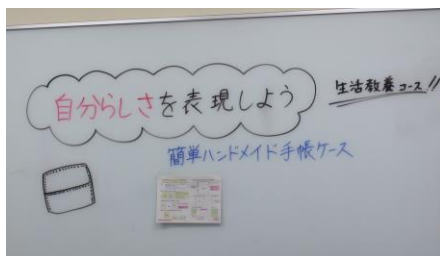 自分らしさを表現しよう
生活教養コース!!
簡単ハンドメイド手帳ケース